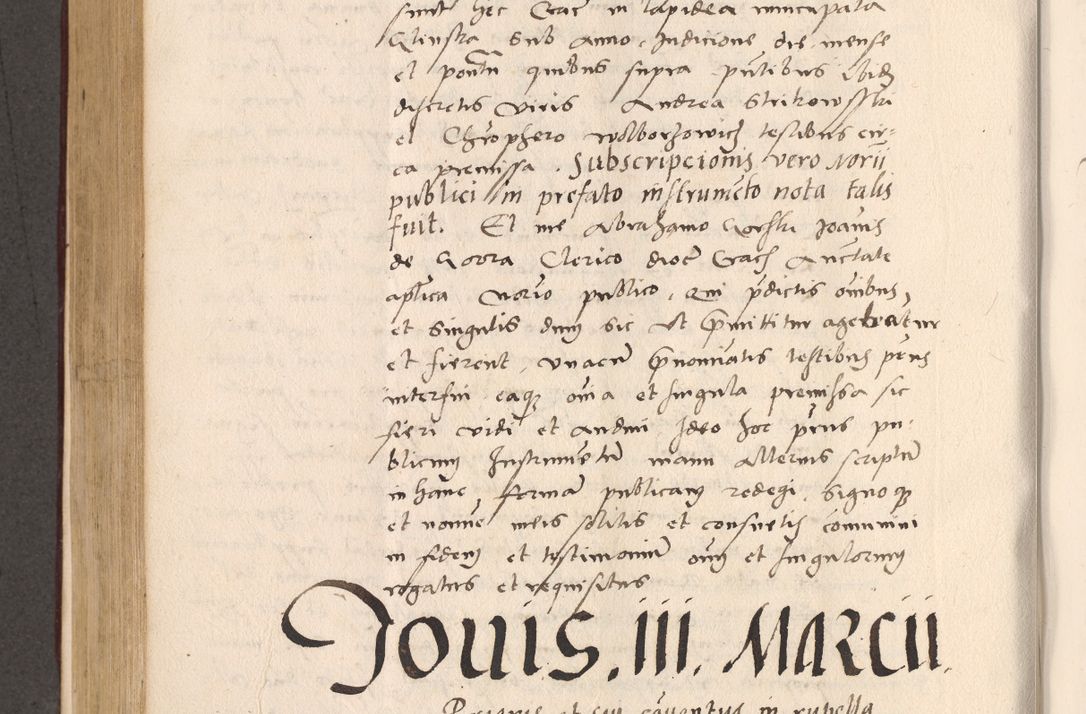 sunt hec Crac in lapidea nuncupata
Glinska Sub anno Indicione die mense
et pontu quibus supra pñtibus ibid
discretis viris Andrea Strikowsski
et Chrophero Wolborzowicz testibus cir-
ca premissa. Subscripcionis vero Norii
publici in prefato instrumẽto nota talis
fuit. Et me Abrahamo Joañis
de Gora Clerico dioc Crac Auctate
aplica Norio publico, Qui p̃dictis oñibus,
et singulis dum sic ut p̃mittitur agebatur
et fierent, vnacũ p̃nominatis testibus p̃ns
interfui eaqȝ oñia et singula premissa sic
fieri vidi et audivi Ideo hoc p̃ns pu-
blicum Instrumẽtũ manu alterius scriptũ
in hanc, formã publicam redegi, signoqȝ
et nomĩe meis solitis et consuetis cõmunivi
in fidem et testimoniũ oĩm et singulorum
rogatus et requisitus
Jouis. iii. Marcii.
et sui in rubella